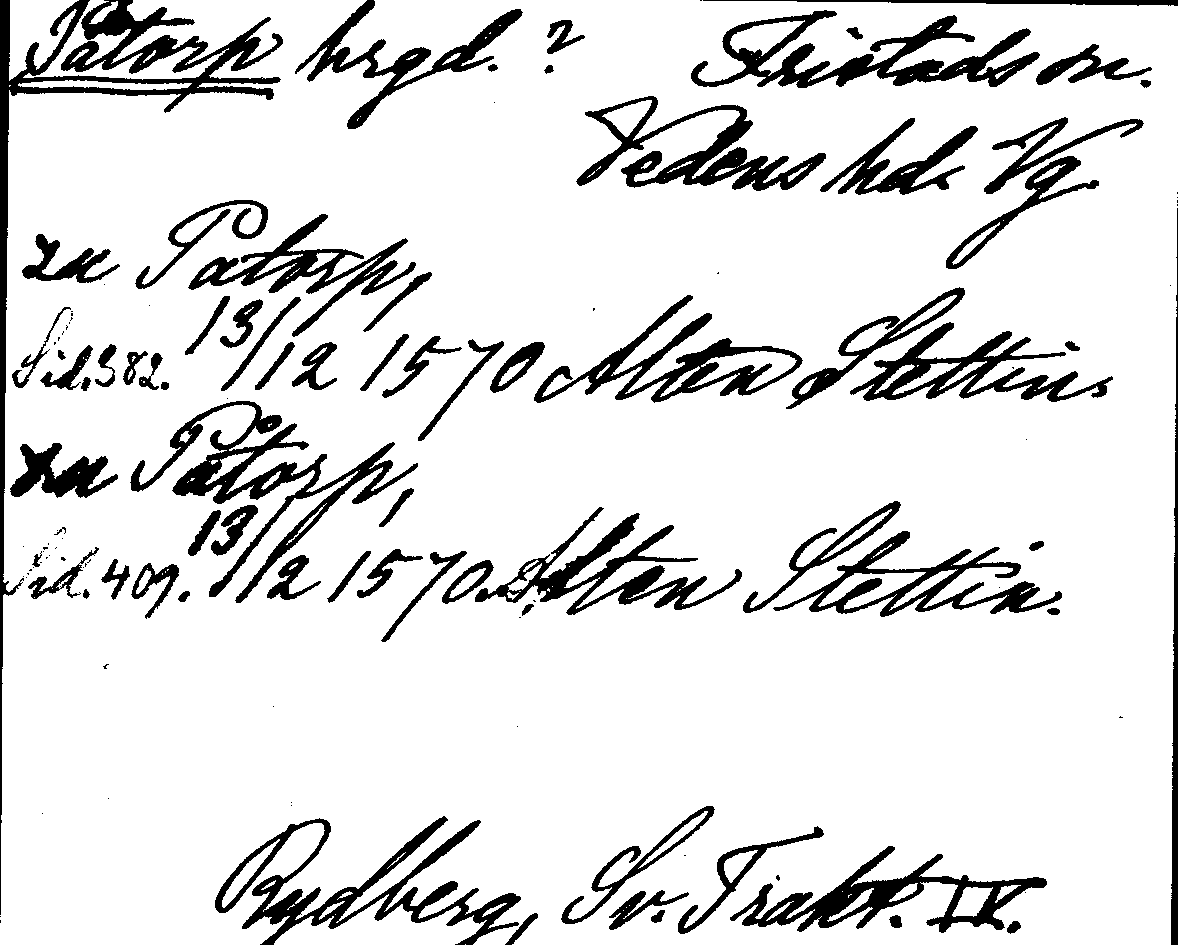 Påtorp hrgd.? Fristads sn.
Vedens hd. Vg.
zu Påtorp,
Sid. 382. 13/12 1570 Alten Stettin.
zu Påtorp,
Sid. 409. 13/12 1570. Alten Stettin.
Rydberg, Sv. Trakt. IV.